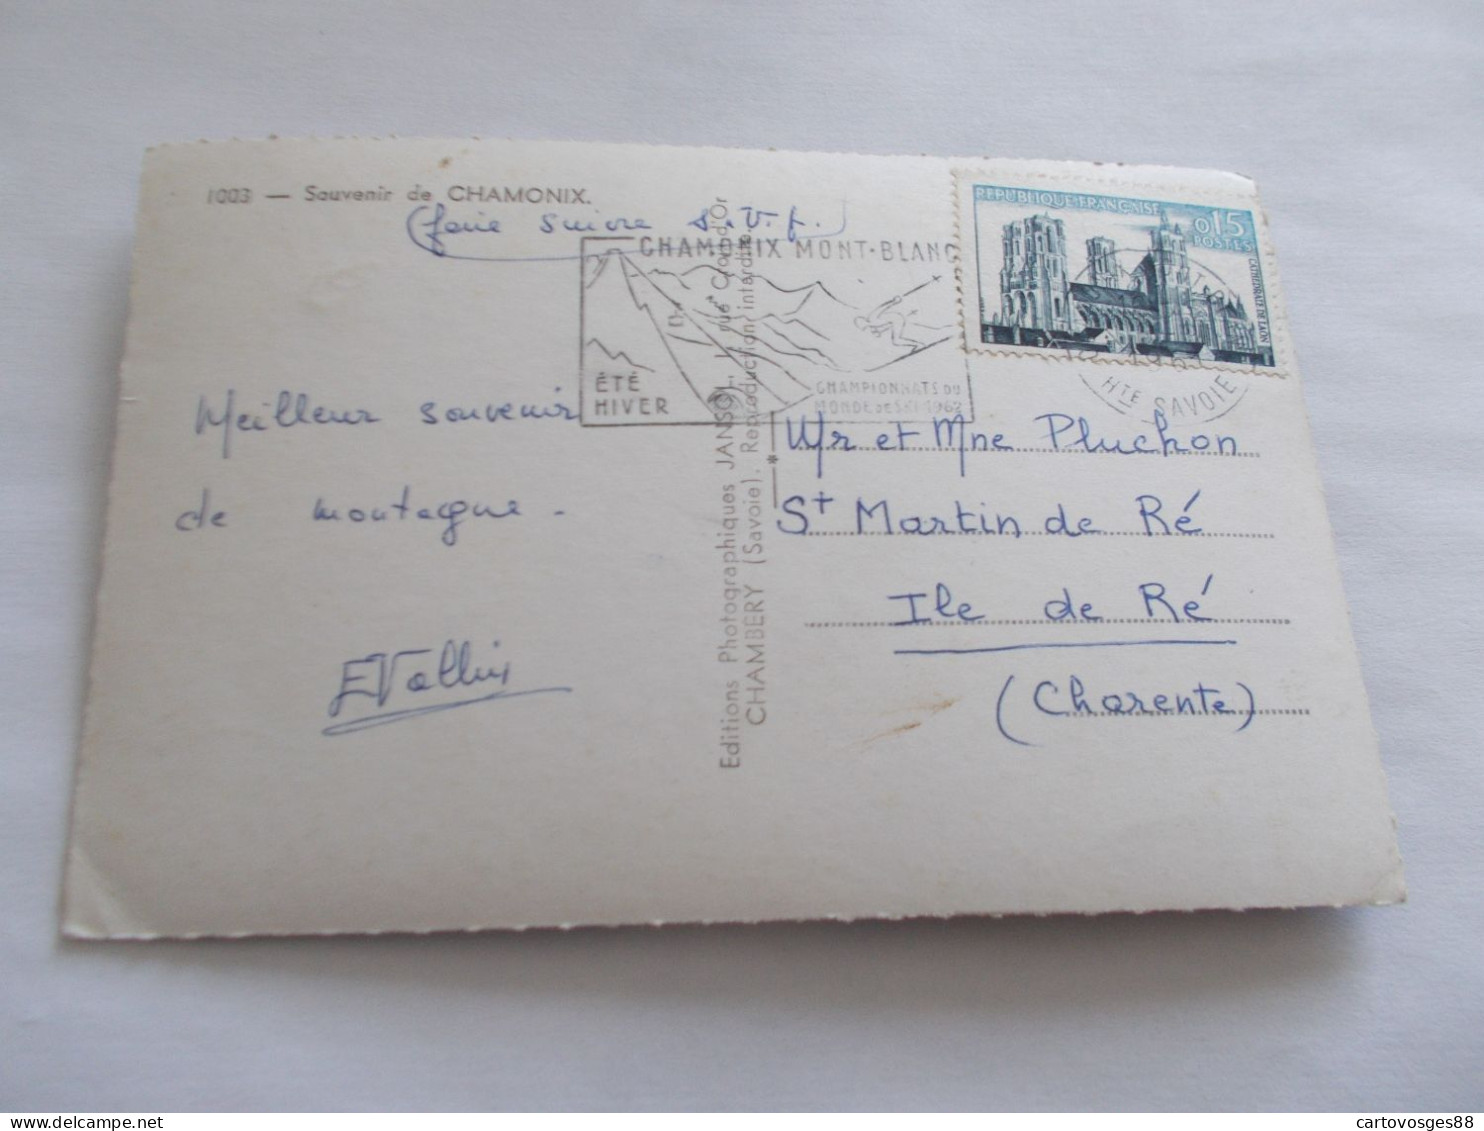 1003 — Souvenir de CHAMONIX.
(faire suivre s.v.p.)
CHAMONIX MONT-BLANC
ÉTÉ
HIVER
CHAMPIONNATS DU
MONDE DE SKI 1962
REPUBLIQUE FRANÇAISE
0,15
POSTES
CATHEDRALE DE LAON
HTE SAVOIE
Meilleur souvenir
de montagne.
EVallin
Editions Photographiques JANSOL, rue Croix d'Or
CHAMBÉRY (Savoie). Reproduction interdite
Mr et Mne Pluchon
St Martin de Ré
Ile de Ré
(Charente)
cartovosges88